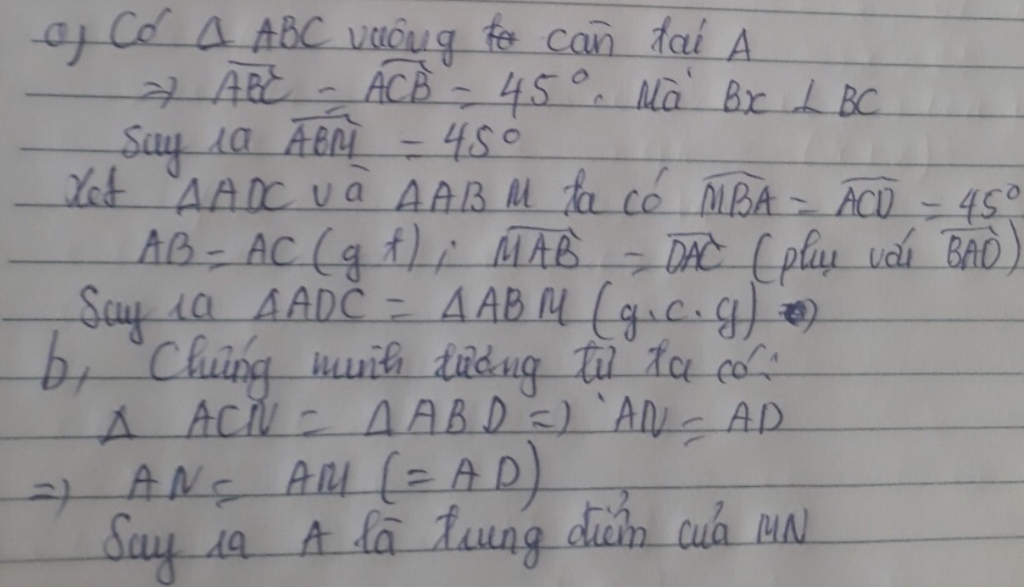 a, Có Δ ABC vuông cân tại A
=> ABC = ACB = 45°. Mà Bx ⊥ BC
Suy ra ABM = 45°
Xét ΔADC và ΔABM ta có MBA = ACD = 45°
AB = AC (gt); MAB = DAC (phụ với BAD)
Suy ra ΔADC = ΔABM (g.c.g)
b, Chứng minh tương tự ta có:
Δ ACN = ΔABD => AN = AD
=> AN = AM (= AD)
Suy ra A là trung điểm của MN